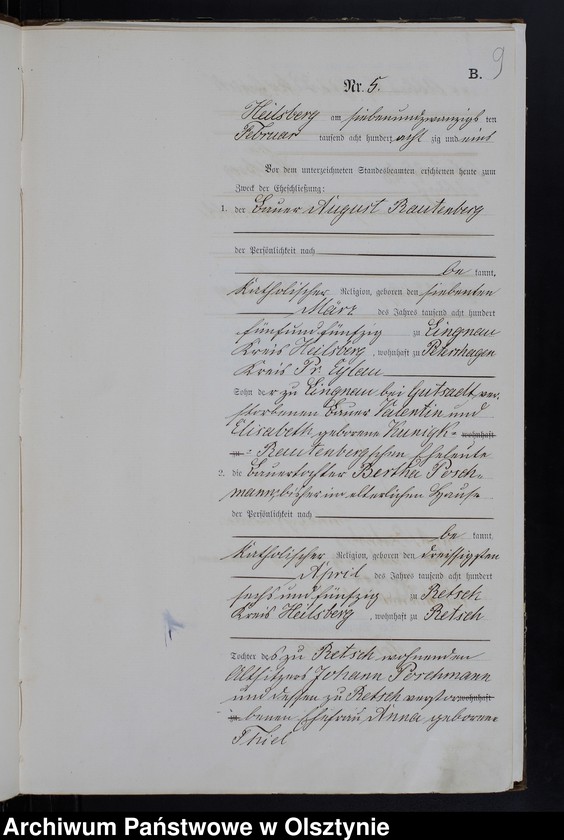 9
B.
Nr. 5.
Heilsberg am siebenundzwanzigs ten
Februar tausend acht hundert acht zig und eins
Vor dem unterzeichneten Standesbeamten erschienen heute zum
Zweck der Eheschließung:
1. der Bauer August Rautenberg
der Persönlichkeit nach
be kannt,
katholischer Religion, geboren den siebenten
März des Jahres tausend acht hundert
fünfundfünfzig zu Lingnau
Kreis Heilsberg, wohnhaft zu Petershagen
Kreis Pr. Eylau
Sohn der zu Lingnau bei Gutstadt ver-
storbenen Bauer Valentin und
Elisabeth geborene Hunigk- wohnhaft
zu - Rautenbergschen Eheleute
2. die Bauertochter Bertha Posch-
mann, bisher im elterlichen Hause
der Persönlichkeit nach
be kannt,
katholischer Religion, geboren den dreissigsten
April des Jahres tausend acht hundert
sechs und fünfzig zu Retsch
Kreis Heilsberg, wohnhaft zu Retsch
Tochter des zu Retsch wohnenden
Altsitzers Johann Poschmann
und dessen zu Retsch verstor- wohnhaft
zu benen Ehefrau Anna geborene
Thiel
Archiwum Państwowe w Olsztynie